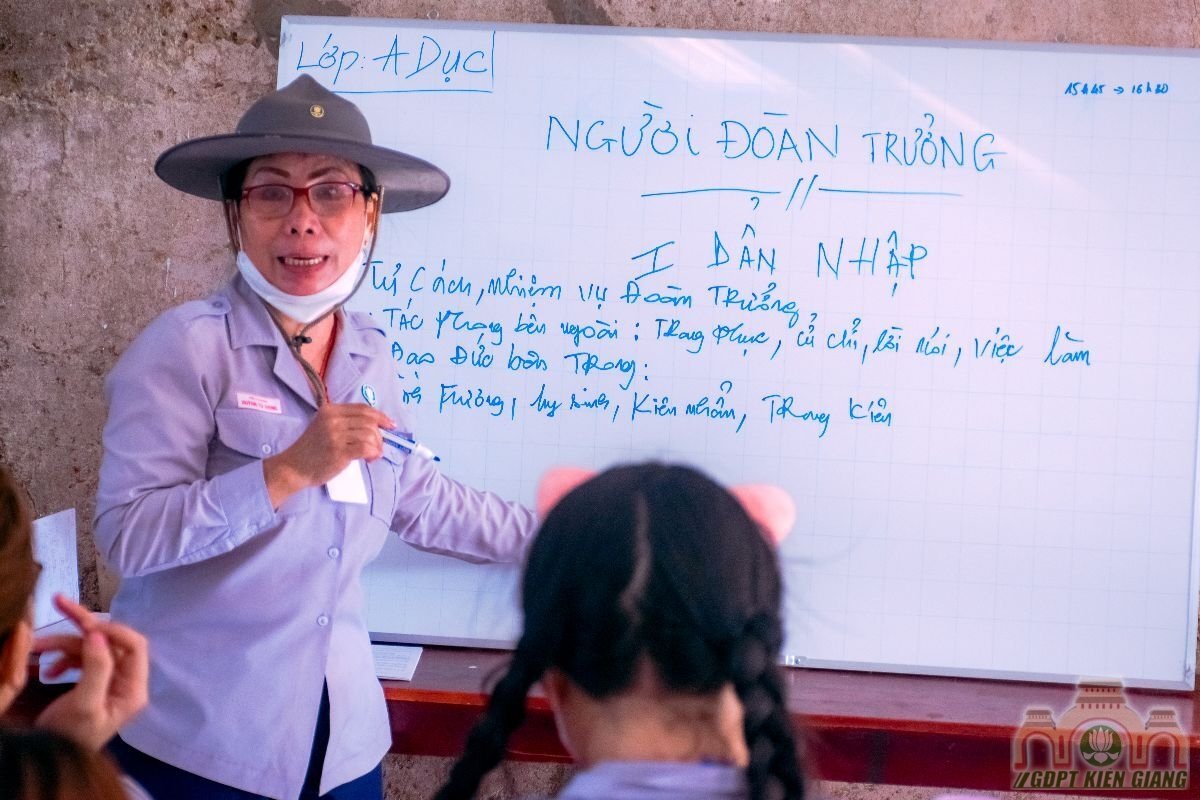 Lớp: A DỤC
15h45 → 16h30
NGƯỜI ĐOÀN TRƯỞNG
I DẪN NHẬP
Tư Cách, Nhiệm vụ Đoàn Trưởng
TÁC phong bên ngoài: Trang phục, cử chỉ, lời nói, việc làm
Đạo Đức bên Trong:
Trường, hy sinh, Kiên nhẫn, Trung Kiên
//GDPT KIEN GIANG